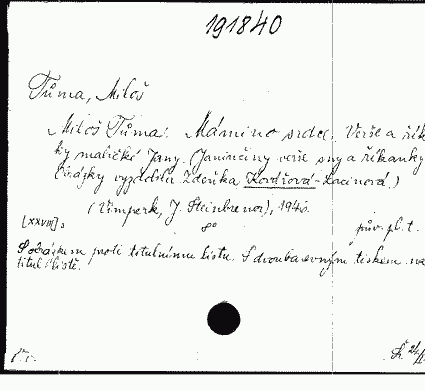 191840
Tůma, Miloš
Miloš Tůma: Mámino srdce. Verše a řík
ky maličké Jany. (Janinčiny verše sny a říkanky
obrázky vyzdobila Zdeňka Kordřová-Lacinová.)
(Vimperk, J. Steinbrener), 1940.
[XXVIII] s 8° pův. pl. t.
S obrázkem proti titulnímu listu. S dvoubarevným tiskem na
titul. listě.